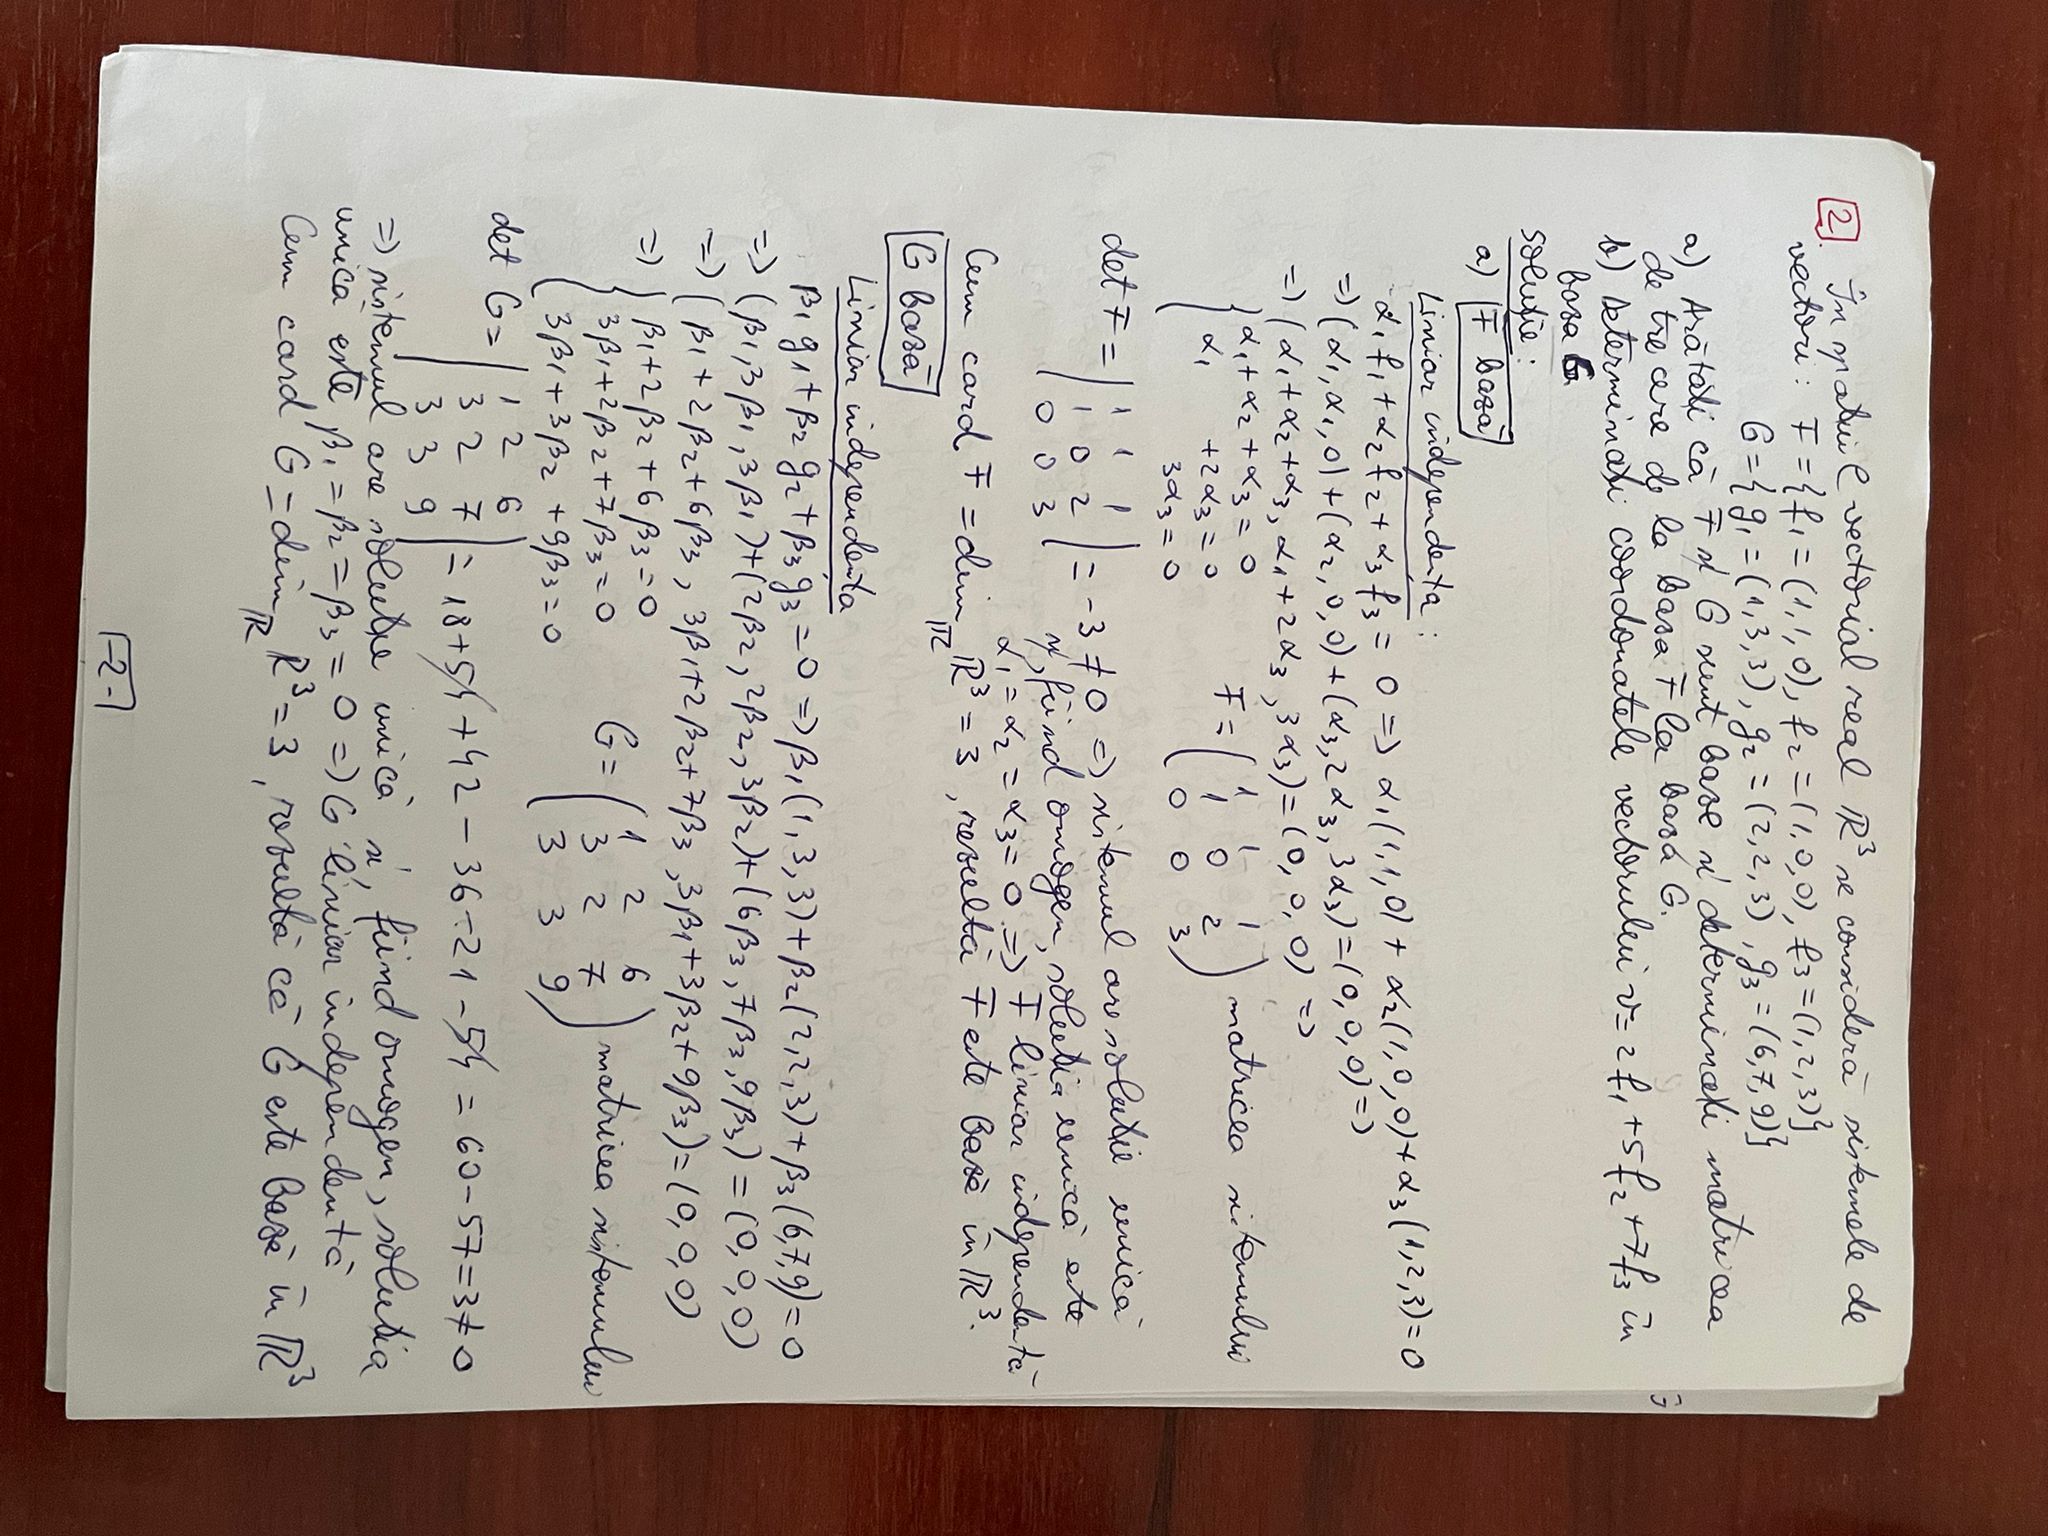 2. În spațiul vectorial real ℝ³ se consideră sistemele de
vectori: F = {f₁ = (1,1,0), f₂ = (1,0,0), f₃ = (1,2,3)}
G = {g₁ = (1,3,3), g₂ = (2,2,3), g₃ = (6,7,9)}
a) Arătați că F și G sunt baze și determinați matricea
de trecere de la baza F la baza G.
b) Determinați coordonatele vectorului v = 2f₁ + 5f₂ + 7f₃ în
baza G
Soluție:
a) F bază
Liniar independența:
α₁f₁ + α₂f₂ + α₃f₃ = 0 => α₁(1,1,0) + α₂(1,0,0) + α₃(1,2,3) = 0
=> (α₁, α₁, 0) + (α₂, 0, 0) + (α₃, 2α₃, 3α₃) = (0, 0, 0) =>
=> (α₁ + α₂ + α₃, α₁ + 2α₃, 3α₃) = (0, 0, 0) =>
{ α₁ + α₂ + α₃ = 0
α₁ + 2α₃ = 0
3α₃ = 0
F = ( 1 1 1
1 0 2
0 0 3 ) matricea sistemului
det F = | 1 1 1
1 0 2
0 0 3 | = -3 ≠ 0 => sistemul are soluție unică
și, fiind omogen, soluția unică este
α₁ = α₂ = α₃ = 0 => F liniar independentă
Cum card F = dim_ℝ ℝ³ = 3, rezultă F este bază în ℝ³.
G bază
Liniar independența
β₁g₁ + β₂g₂ + β₃g₃ = 0 => β₁(1,3,3) + β₂(2,2,3) + β₃(6,7,9) = 0
=> (β₁, 3β₁, 3β₁) + (2β₂, 2β₂, 3β₂) + (6β₃, 7β₃, 9β₃) = (0, 0, 0)
=> (β₁ + 2β₂ + 6β₃, 3β₁ + 2β₂ + 7β₃, 3β₁ + 3β₂ + 9β₃) = (0, 0, 0)
=> { β₁ + 2β₂ + 6β₃ = 0
3β₁ + 2β₂ + 7β₃ = 0
3β₁ + 3β₂ + 9β₃ = 0
G = ( 1 2 6
3 2 7
3 3 9 ) matricea sistemului
det G = | 1 2 6
3 2 7
3 3 9 | = 18 + 54 + 42 - 36 - 21 - 54 = 60 - 57 = 3 ≠ 0
=> sistemul are soluție unică și, fiind omogen, soluția
unică este β₁ = β₂ = β₃ = 0 => G liniar independentă
Cum card G = dim_ℝ ℝ³ = 3, rezultă că G este bază în ℝ³
-2-